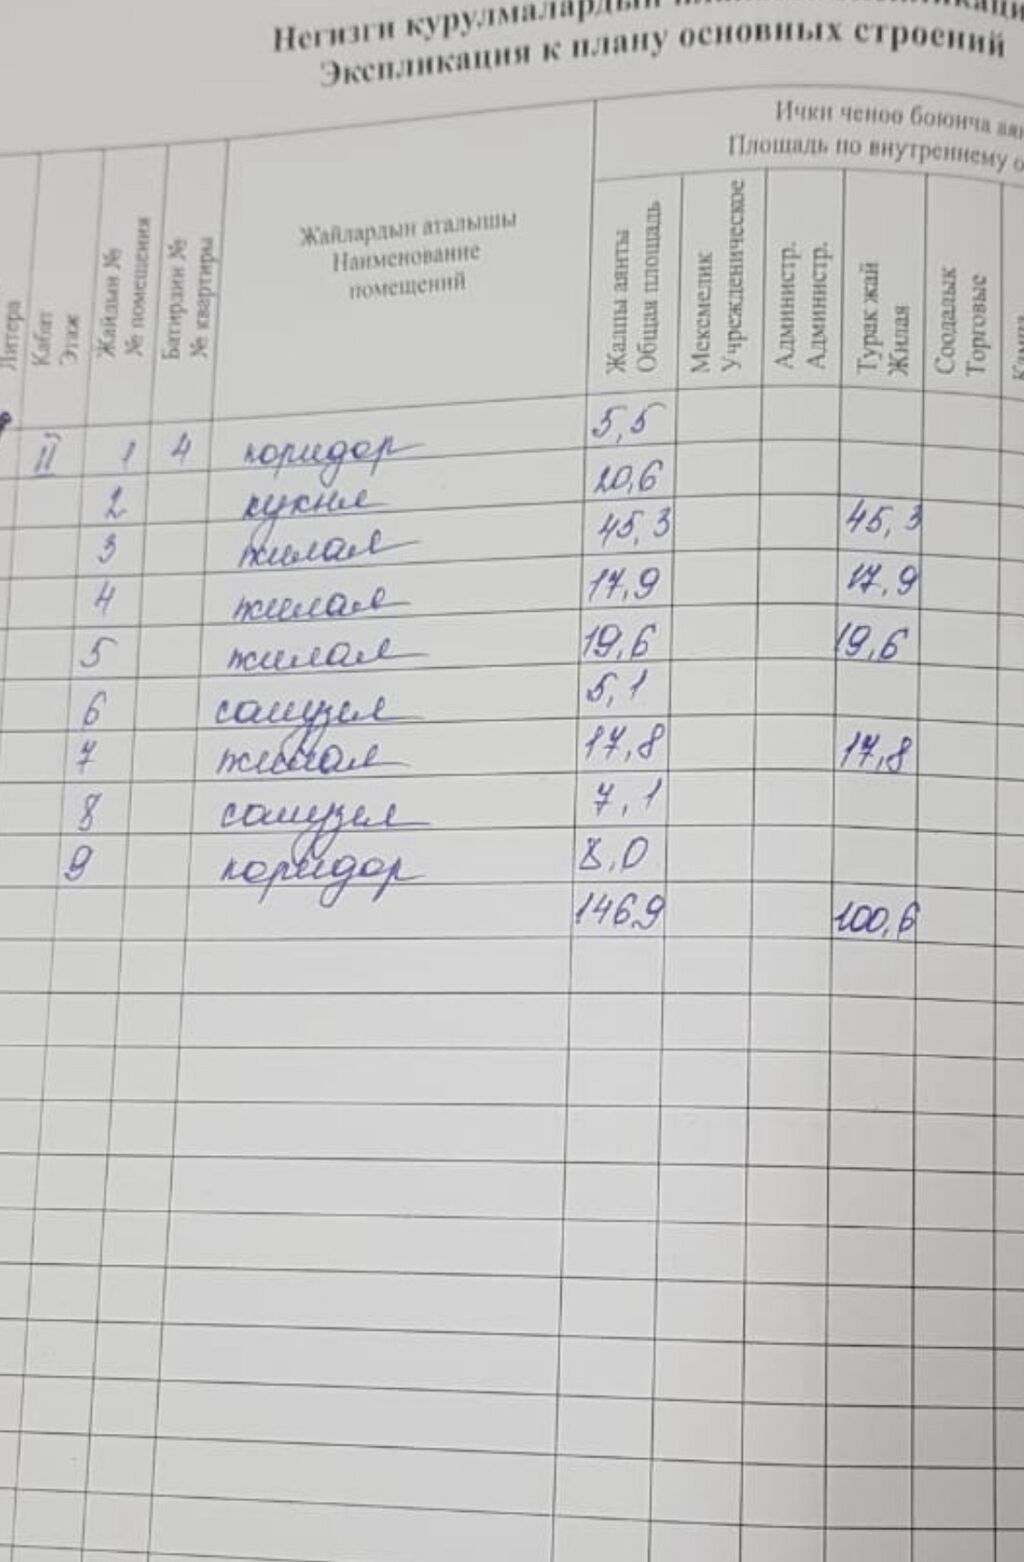 Негизги курулмалардын
Экспликация к плану основных строений
Ички ченоо боюнча
Площадь по внутреннему
Литера
Кабат
Этаж
Жайдын №
№ помещения
Батирдин №
№ квартиры
Жайлардын аталышы
Наименование
помещений
Жалпы аянты
Общая площадь
Мекемелик
Учрежденическое
Администр.
Администр.
Турак жай
Жилая
Соодалык
Торговые
II 1 4 коридор 5,5
2 кухня 20,6
3 жилая 45,3 45,3
4 жилая 17,9 17,9
5 жилая 19,6 19,6
6 санузел 5,1
7 жилая 17,8 17,8
8 санузел 7,1
9 коридор 8,0
146,9 100,6